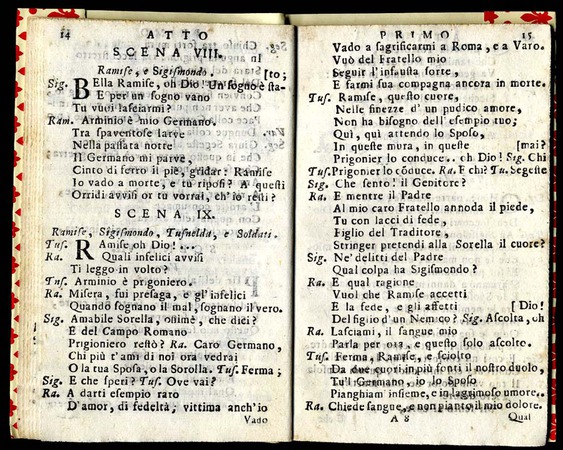 14 ATTO
SCENA VIII.
Ramise, e Sigismondo. [to;
Sig. BElla Ramise, oh Dio! Un sogno è sta-
E per un sogno vano
Tu vuoi lasciarmi?
Ram. Arminio è mio Germano.
Tra spaventose larve
Nella passata notte
Il Germano mi parve,
Cinto di ferro il piè, gridar: Ramise
Io vado a morte, e tu riposi? A questi
Orridi avvisi or tu vorrai, ch'io resti?
SCENA IX.
Ramise, Sigismondo, Tusnelda, e Soldati.
Tus. RAmise oh Dio!...
Ra. Quali infelici avvisi
Ti leggo in volto?
Tus. Arminio è prigoniero.
Ra. Misera, fui presaga, e gl'infelici
Quando sognano il mal, sognano il vero.
Sig. Amabile Sorella, oimè, che dici?
E del Campo Romano
Prigioniero restò? Ra. Caro Germano,
Chi più t'ami di noi ora vedrai
O la tua Sposa, o la Sorolla. Tus. Ferma;
Sig. E che speri? Tus. Ove vai?
Ra. A darti esempio raro
D'amor, di fedeltà; vittima anch'io
Vado
PRIMO 15
Vado a sagrificarmi a Roma, e a Varo.
Vuò del Fratello mio
Seguir l'infausta sorte,
E farmi sua compagna ancora in morte.
Tus. Ramise, questo cuore,
Nelle finezze d'un pudico amore,
Non ha bisogno dell'esempio tuo;
Quì, quì attendo lo Sposo,
In queste mura, in queste [mai?
Prigonier lo conduce.. oh Dio! Sig. Chi
Tus. Prigonier lo cōduce. Ra. E chi? Tu. Segeste
Sig. Che sento! il Genitore?
Ra. E mentre il Padre
Al mio caro Fratello annoda il piede,
Tu con lacci di fede,
Figlio del Traditore,
Stringer pretendi alla Sorella il cuore?
Sig. Ne' delitti del Padre
Qual colpa ha Sigismondo?
Ra. E qual ragione
Vuol che Ramise accetti
E la fede, e gli affetti [Dio!
Del figlio d'un Nemico? Sig. Ascolta, oh
Ra. Lasciami, il sangue mio
Parla per ora, e questo solo ascolto.
Tus. Ferma, Ramise, e sciolto
Da due cuori in più fonti il nostro duolo,
Tu'l Germano, io lo Sposo
Pianghiam insieme, e in lagrimoso umore..
Ra. Chiede sangue, e non pianto il mio dolore.
A 8 Qual